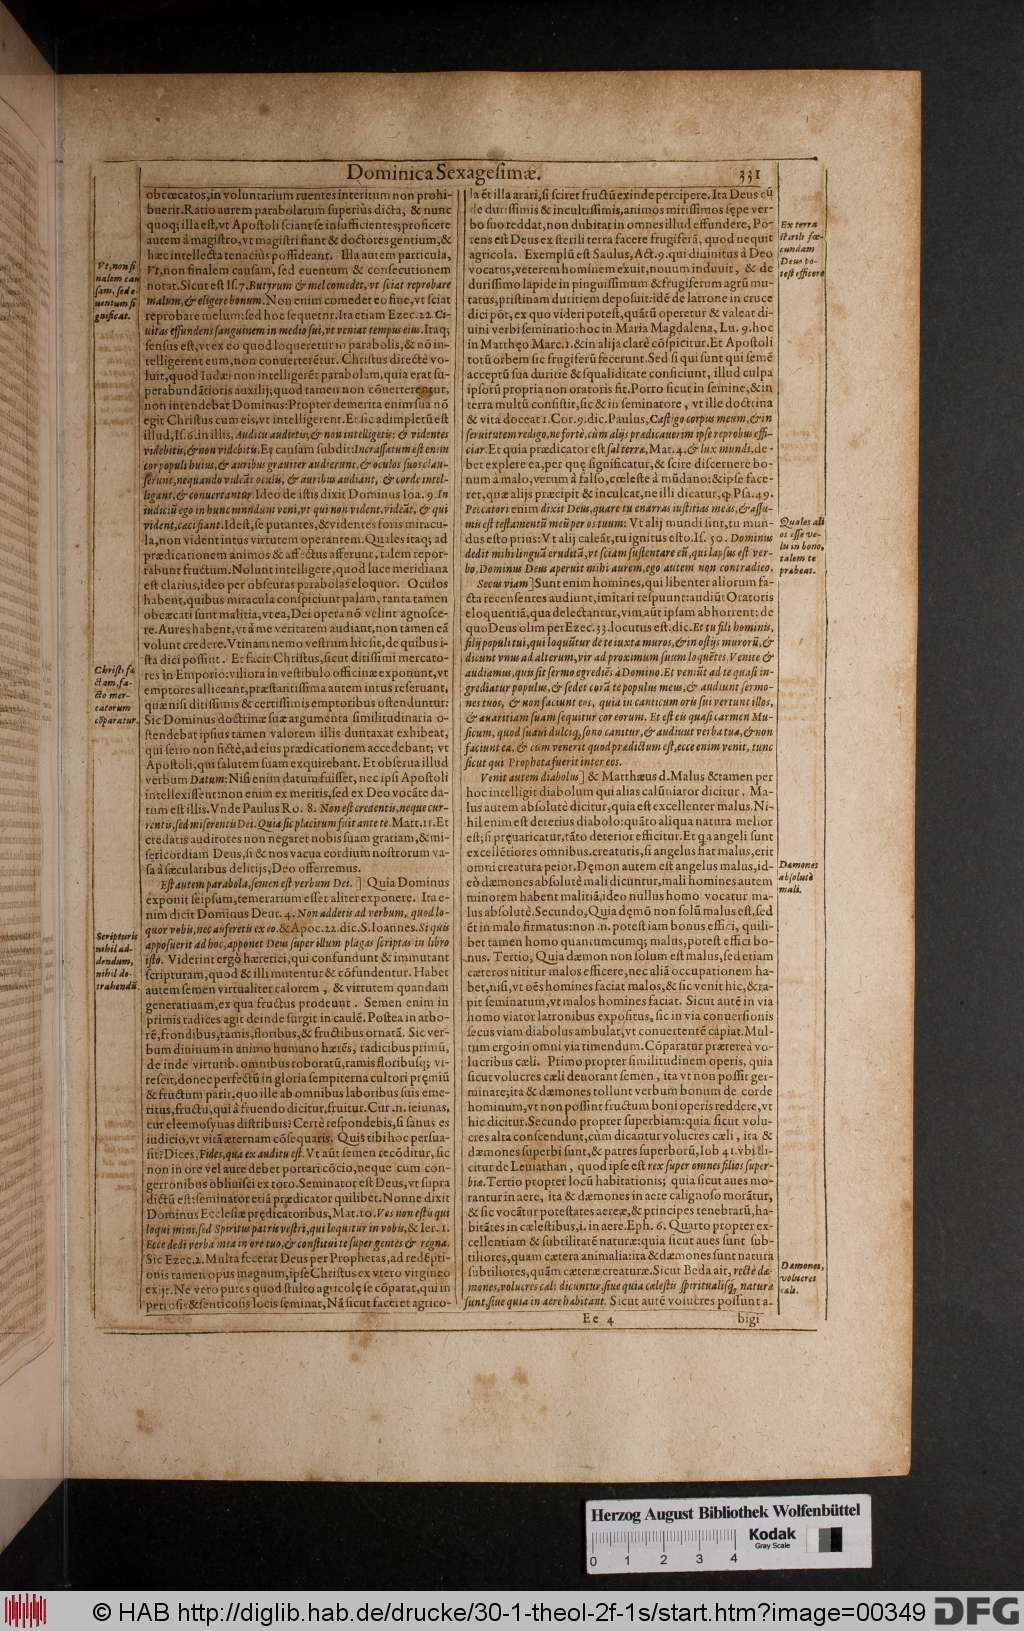 Dominica Sexagesimæ.
331
obcœcatos, in voluntarium ruentes interitum non prohi-
buerit. Ratio autem parabolarum superiùs dicta, & nunc
quoq; illa est, vt Apostoli sciant se insufficientes; proficere
autem à magistro, vt magistri fiant & doctores gentium, &
hæc intellecta tenacius possideant. Illa autem particula,
Vt, non finalem causam, sed euentum & consecutionem
notat. Sicut est Is. 7. Butyrum & mel comedet, vt sciat reprobare
malum, & eligere bonum. Non enim comedet eo fine, vt sciat
reprobare malum: sed hoc sequetur. Ita etiam Ezec. 22. Ci-
uitas effundens sanguinem in medio sui, vt veniat tempus eius. Itaq;
sensus est, vt ex eo quod loqueretur in parabolis, & nō in-
telligerent eum, non conuerterētur. Christus directè vo-
luit, quod Iudæi non intelligerēt parabolam, quia erat su-
perabundātioris auxilij; quod tamen non cōuerterentur,
non intendebat Dominus: Propter demerita enim sua nō
egit Christus cum eis, vt intelligerent. Et sic adimpletū est
illud, Is. 6. in illis, Auditu audietis, & non intelligetis: & videntes
videbitis, & non videbitis. Eę causam subdit: Incrassatum est enim
cor populi huius, & auribus grauiter audierunt, & oculos suos clau-
serunt, nequando videāt oculis, & auribus audiant, & corde intel-
ligant, & conuertantur. Ideo de istis dixit Dominus Ioa. 9. In
iudiciū ego in hunc mundum veni, vt qui non vident, videāt, & qui
vident, cæci fiant. Idest, se putantes, & videntes foris miracu-
la, non vident intus virtutem operantem. Quales itaq; ad
prædicationem animos & affectus afferunt, talem repor-
tabunt fructum. Nolunt intelligere, quod luce meridiana
est clarius, ideo per obscuras parabolas eloquor. Oculos
habent, quibus miracula conspiciunt palam, tanta tamen
obcæcati sunt malitia, vt ea, Dei opera nō velint agnosce-
re. Aures habent, vt à me veritatem audiant, non tamen eā
volunt credere. Vtinam nemo vestrum hic sit, de quibus i-
sta dici possint. Et facit Christus, sicut ditissimi mercato-
res in Emporio: viliora in vestibulo officinæ exponunt, vt
emptores alliceant, præstantissima autem intus reseruant,
quæ nisi ditissimis & certissimis emptoribus ostenduntur:
Sic Dominus doctrinæ suæ argumenta similitudinaria o-
stendebat ipsius tamen valorem illis duntaxat exhibeat,
qui serio non fictè, ad eius prædicationem accedebant; vt
Apostoli, qui salutem suam exquirebant. Et obserua illud
verbum Datum: Nisi enim datum fuisset, nec ipsi Apostoli
intellexissent: non enim ex meritis, sed ex Deo vocāte da-
tum est illis. Vnde Paulus Ro. 8. Non est credentis, neque cur-
rentis, sed miserentis Dei. Quia sic placitum fuit ante te. Matt. 11. Et
credatis auditores non negaret nobis suam gratiam, & mi-
sericordiam Deus, si & nos vacua cordium nostrorum va-
sa à sæcularibus delicijs, Deo offerremus.
Est autem parabola, semen est verbum Dei. ] Quia Dominus
exponit seipsum, temerarium esset aliter exponere. Ita e-
nim dicit Dominus Deut. 4. Non addetis ad verbum, quod lo-
quor vobis, nec auferetis ex eo. & Apoc. 22. dic. S. Ioannes. Si quis
apposuerit ad hoc, apponet Deus super illum plagas scriptas in libro
isto. Viderint ergò hæretici, qui confundunt & immutant
scripturam, quod & illi mutentur & cōfundentur. Habet
autem semen virtualiter calorem, & virtutem quandam
generatiuam, ex qua fructus prodeunt. Semen enim in
primis radices agit deinde surgit in caulē. Postea in arbo-
rē, frondibus, ramis, floribus, & fructibus ornatā. Sic ver-
bum diuinum in animo humano hærēs, radicibus primū,
deinde virtutib. omnibus roboratū, ramis floribusq; vi-
rescit, donec perfectū in gloria sempiterna cultori pręmiū
& fructum parit, quo ille ab omnibus laboribus suis eme-
ritus, fructu, qui à fruendo dicitur, fruitur. Cur .n. ieiunas,
cur eleemosynas distribuis? Certè respondebis, si sanus es
iudicio, vt vitā æternam cōsequaris. Quis tibi hoc persua-
sit? Dices, Fides, quæ ex auditu est. Vt aūt semen recōditur, sic
non in ore vel aure debet portari cōcio, neque cum con-
gerronibus obliuisci ex toto. Seminator est Deus, vt supra
dictū est: seminator etiā prædicator quilibet. Nonne dixit
Dominus Ecclesiæ prędicatoribus, Mat. 10. Vos non estis qui
loquimini, sed Spiritus patris vestri, qui loquitur in vobis, & Ier. 1.
Ecce dedi verba mea in ore tuo, & constitui te super gentes & regna.
Sic Ezec. 2. Multa fecerat Deus per Prophetas, ad redēpti-
onis tamen opus magnum, ipse Christus ex vtero virgineo
exijt. Ne vero putes quod stulto agricolę se cōparat, qui in
petrosis & senticosis locis seminat, Nā sicut faceret agrico-
la ēt illa arari, si sciret fructū exinde percipere. Ita Deus cū
de durissimis & incultissimis, animos mitissimos sępe ver-
bo suo reddat, non dubitat in omnes illud effundere, Po-
tens est Deus ex sterili terra facere frugiferā, quod nequit
agricola. Exemplū est Saulus, Act. 9. qui diuinitus à Deo
vocatus, veterem hominem exuit, nouum induuit, & de
durissimo lapide in pinguissimum & frugiferum agrū mu-
tatus, pristinam duritiem deposuit: idē de latrone in cruce
dici pōt, ex quo videri potest, quātū operetur & valeat di-
uini verbi seminatio: hoc in Maria Magdalena, Lu. 9. hoc
in Matthęo Marc. 1. & in alija clarè cōspicitur. Et Apostoli
totū orbem sic frugiferū fecerunt. Sed si qui sunt qui semē
acceptū sua duritie & squaliditate conficiunt, illud culpa
ipsorū propria non oratoris fit. Porro sicut in semine, & in
terra multū consistit, sic & in seminatore, vt ille doctrina
& vita doceat 1. Cor. 9. dic. Paulus, Castigo corpus meum, & in
seruitutem redigo, ne fortè, cùm alijs prædicauerim ipse reprobus effi-
ciar. Et quia prædicator est sal terræ, Mat. 4. & lux mundi, de-
bet explere ea, per quę significatur, & scire discernere bo-
num à malo, verum à falso, cœleste à mūdano: & ipse face-
ret, quæ alijs præcipit & inculcat, ne illi dicatur, q; Psa. 49.
Peccatori enim dixit Deus, quare tu enarras iustitias meas, & assu-
mis testamentū meū per os tuum: Vt alij mundi sint, tu mun-
dus esto prius: Vt alij caleāt, tu ignitus esto. Is. 50. Dominus
dedit mihi linguā eruditā, vt sciam sustentare eū, qui lapsus est ver-
bo, Dominus Deus aperuit mihi aurem, ego autem non contradico.
Secus viam] Sunt enim homines, qui libenter aliorum fa-
cta recensentes audiunt, imitari respuunt: audiūt Oratoris
eloquentiā, qua delectantur, vim aūt ipsam abhorrent: de
quo Deus olim per Ezec. 33. locutus est. dic. Et tu fili hominis,
filij populi tui, qui loquūtur de te iuxta muros, & in ostijs murorū, &
dicunt vnus ad alterum, vir ad proximum suum loquētes. Venite &
audiamus, quis sit sermo egrediēs à Domino. Et veniūt ad te quasi in-
grediatur populus, & sedet corā te populus meus, & audiunt sermo-
nes tuos, & non faciunt eos, quia in canticum oris sui vertunt illos,
& auaritiam suam sequitur cor eorum. Et est eis quasi carmen Mu-
sicum, quod suaui dulciq; sono canitur, & audiunt verba tua, & non
faciunt ea, & cum venerit quod prædictum est, ecce enim venit, tunc
sicut qui Propheta fuerit inter eos.
Venit autem diabolus] & Matthæus d. Malus & tamen per
hoc intelligit diabolum qui alias calūniator dicitur. Ma-
lus autem absolutè dicitur, quia est excellenter malus. Ni-
hil enim est deterius diabolo: quāto aliqua natura melior
est; si pręuaricatur, tāto deterior efficitur. Et qa angeli sunt
excellētiores omnibus. creaturis, si angelus fiat malus, erit
omni creatura peior. Dęmon autem est angelus malus, id-
eò dæmones absolutè mali dicuntur, mali homines autem
minorem habent malitiā, ideo nullus homo vocatur ma-
lus absolutè. Secundo, Quia dęmō non solū malus est, sed
ēt in malo firmatus: non .n. potest iam bonus effici, quili-
bet tamen homo quantumcumq; malus, potest effici bo-
nus. Tertio, Quia dæmon non solum est malus, sed etiam
cæteros nititur malos efficere, nec aliā occupationem ha-
bet, nisi, vt oēs homines faciat malos, & sic venit hic, & ra-
pit seminatum, vt malos homines faciat. Sicut autē in via
homo viator latronibus expositus, sic in via conuersionis
secus viam diabolus ambulat, vt conuertentē capiat. Mul-
tum ergo in omni via timendum. Cōparatur præterea vo-
lucribus cæli. Primo propter similitudinem operis, quia
sicut volucres cæli deuorant semen, ita vt non possit ger-
minare; ita & dæmones tollunt verbum bonum de corde
hominum, vt non possint fructum boni operis reddere, vt
hic dicitur. Secundo propter superbiam: quia sicut volu-
cres alta conscendunt, cùm dicantur volucres cæli, ita &
dæmones superbi sunt, & patres superborū, Iob 41. vbi di-
citur de Leuiathan, quod ipse est rex super omnes filios super-
biæ. Tertio propter locū habitationis; quia sicut aues mo-
rantur in aere, ita & dæmones in aere caliginoso morātur,
& sic vocātur potestates aereæ, & principes tenebrarū, ha-
bitātes in cælestibus, i. in aere. Eph. 6. Quarto propter ex-
cellentiam & subtilitatē naturæ: quia sicut aues sunt sub-
tiliores, quam cætera animalia: ita & dæmones sunt natura
subtiliores, quàm cæteræ creaturæ. Sicut Beda ait, rectè dæ-
mones, volucres cæli dicuntur, siue quia cælestis spiritualisq; naturæ
sunt, siue quia in aere habitant. Sicut autē volucres possunt a-
Ee 4
bigi
Vt, non fi
nalem cau
sam, sed e-
uentum si
gnificat.
Christi fa
ctam, fa-
cto mer-
catorum
cōparatur.
Scripturis
nihil ad-
dendum,
nihil de-
trahendū.
Ex terra
sterili fœ-
cundam
Deus po-
test efficere
Quales ali
os esse ve-
lis in bono,
talem te
præbeas.
Dæmones
absolutè
mali.
Dæmones,
volucres
cæli.
Herzog August Bibliothek Wolfenbüttel
Kodak
Gray Scale
0 1 2 3 4
© HAB http://diglib.hab.de/drucke/30-1-theol-2f-1s/start.htm?image=00349
DFG